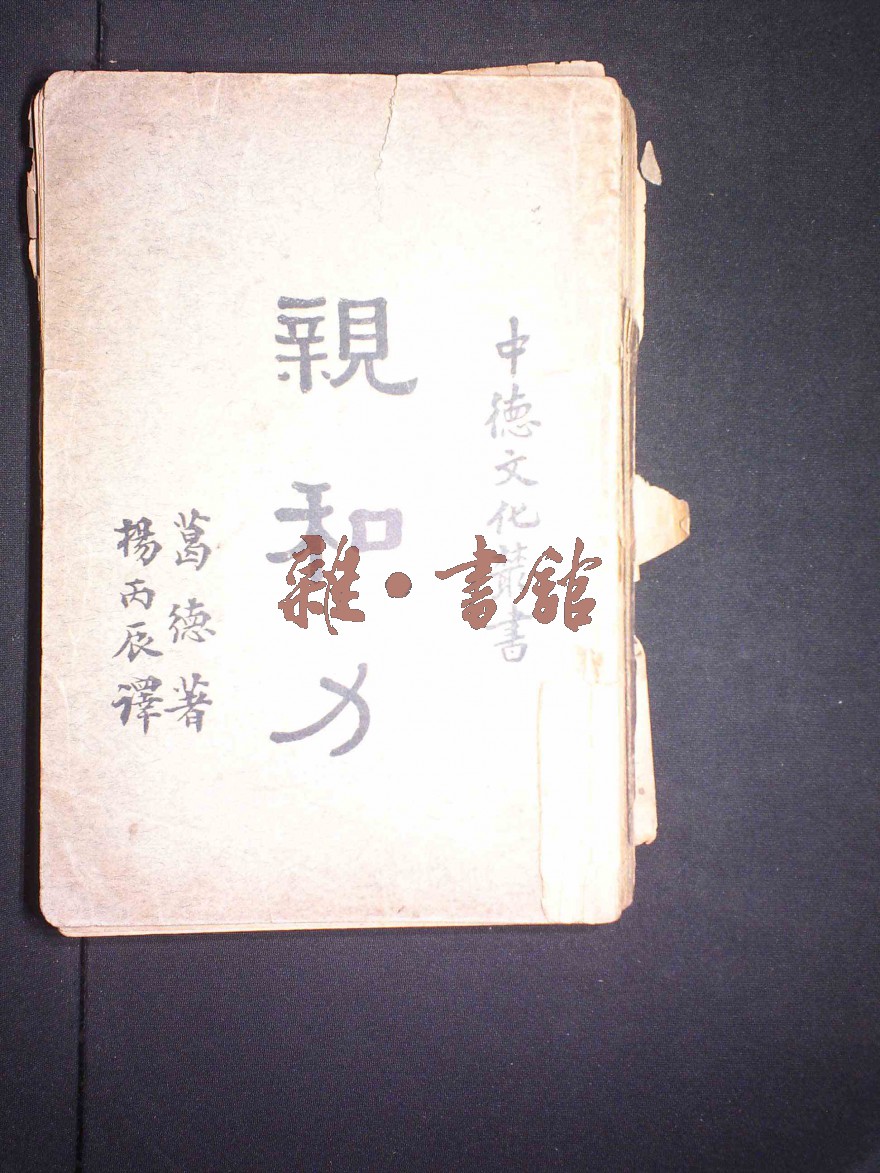 中德文化叢書
親和力
葛德著
楊丙辰譯
雜·書館